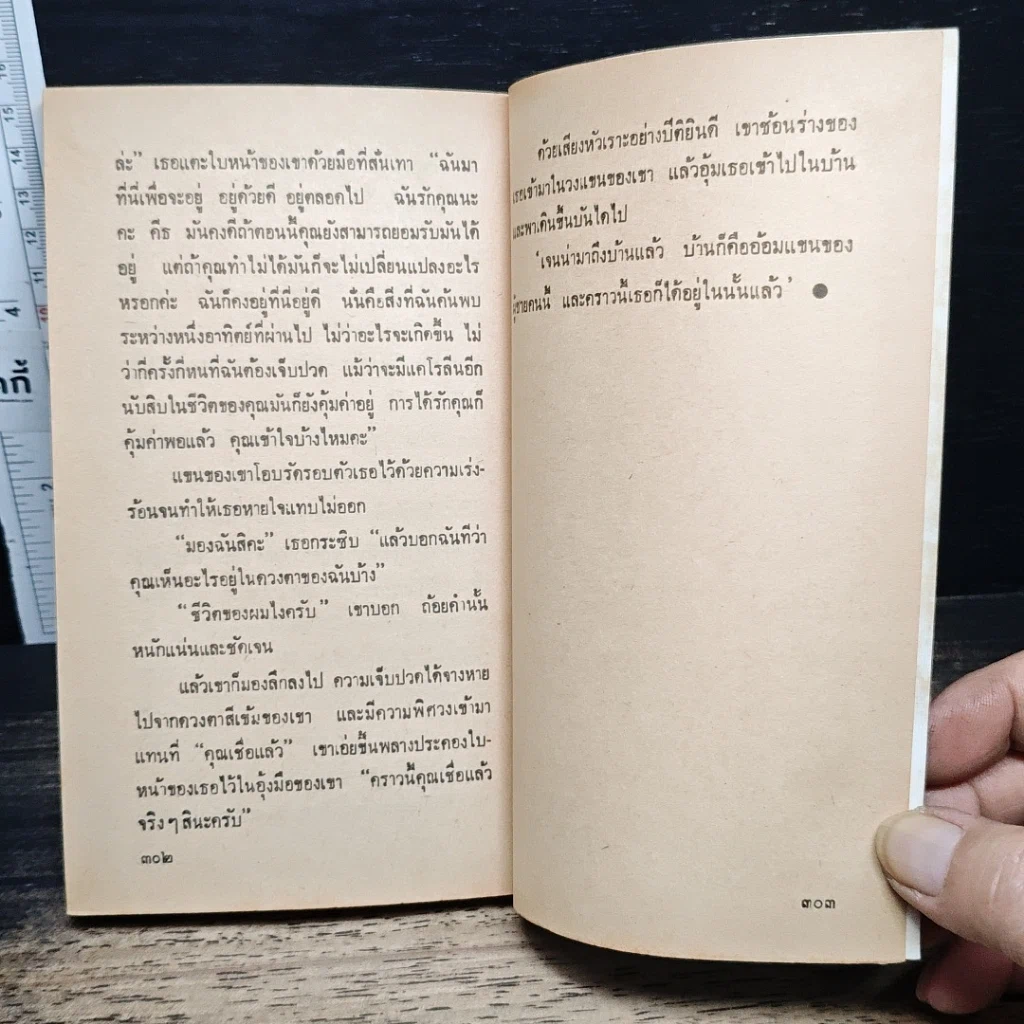 ล่ะ” เธอแตะใบหน้าของเขาด้วยมือที่สั่นเทา “ฉันมา
ที่นี่เพื่อจะอยู่ อยู่ด้วยดี อยู่ตลอดไป ฉันรักคุณนะ
คะ คีธ มันคงดีถ้าตอนนี้คุณยังสามารถยอมรับมันได้
อยู่ แต่ถ้าคุณทำไม่ได้มันก็จะไม่เปลี่ยนแปลงอะไร
หรอกค่ะ ฉันก็คงอยู่ที่นี่อยู่ดี นั่นคือสิ่งที่ฉันค้นพบ
ระหว่างหนึ่งอาทิตย์ที่ผ่านไป ไม่ว่าอะไรจะเกิดขึ้น ไม่
ว่ากี่ครั้งกี่หนที่ฉันต้องเจ็บปวด แม้ว่าจะมีแคโรลีนอีก
นับสิบในชีวิตของคุณมันก็ยังคุ้มค่าอยู่ การได้รักคุณก็
คุ้มค่าพอแล้ว คุณเข้าใจบ้างไหมคะ”
แขนของเขาโอบรัดรอบตัวเธอไว้ด้วยความเร่ง-
ร้อนจนทำให้เธอหายใจแทบไม่ออก
“มองฉันสิคะ” เธอกระซิบ “แล้วบอกฉันทีว่า
คุณเห็นอะไรอยู่ในดวงตาของฉันบ้าง”
“ชีวิตของผมไงครับ” เขาบอก ถ้อยคำนั้น
หนักแน่นและชัดเจน
แล้วเขาก็มองลึกลงไป ความเจ็บปวดได้จางหาย
ไปจากดวงตาสีเข้มของเขา และมีความพิศวงเข้ามา
แทนที่ “คุณเชื่อแล้ว” เขาเอ่ยขึ้นพลางประคองใบ-
หน้าของเธอไว้ในอุ้งมือของเขา “คราวนี้คุณเชื่อแล้ว
จริงๆสินะครับ”
๓๐๒
ด้วยเสียงหัวเราะอย่างปีติยินดี เขาช้อนร่างของ
เธอเข้ามาในวงแขนของเขา แล้วอุ้มเธอเข้าไปในบ้าน
และพาเดินขึ้นบันไดไป
‘เจนน่ามาถึงบ้านแล้ว บ้านก็คืออ้อมแขนของ
ผู้ชายคนนี้ และคราวนี้เธอก็ได้อยู่ในนั้นแล้ว’ ●
๓๐๓
16
15
14
13
12
11
10
4
2